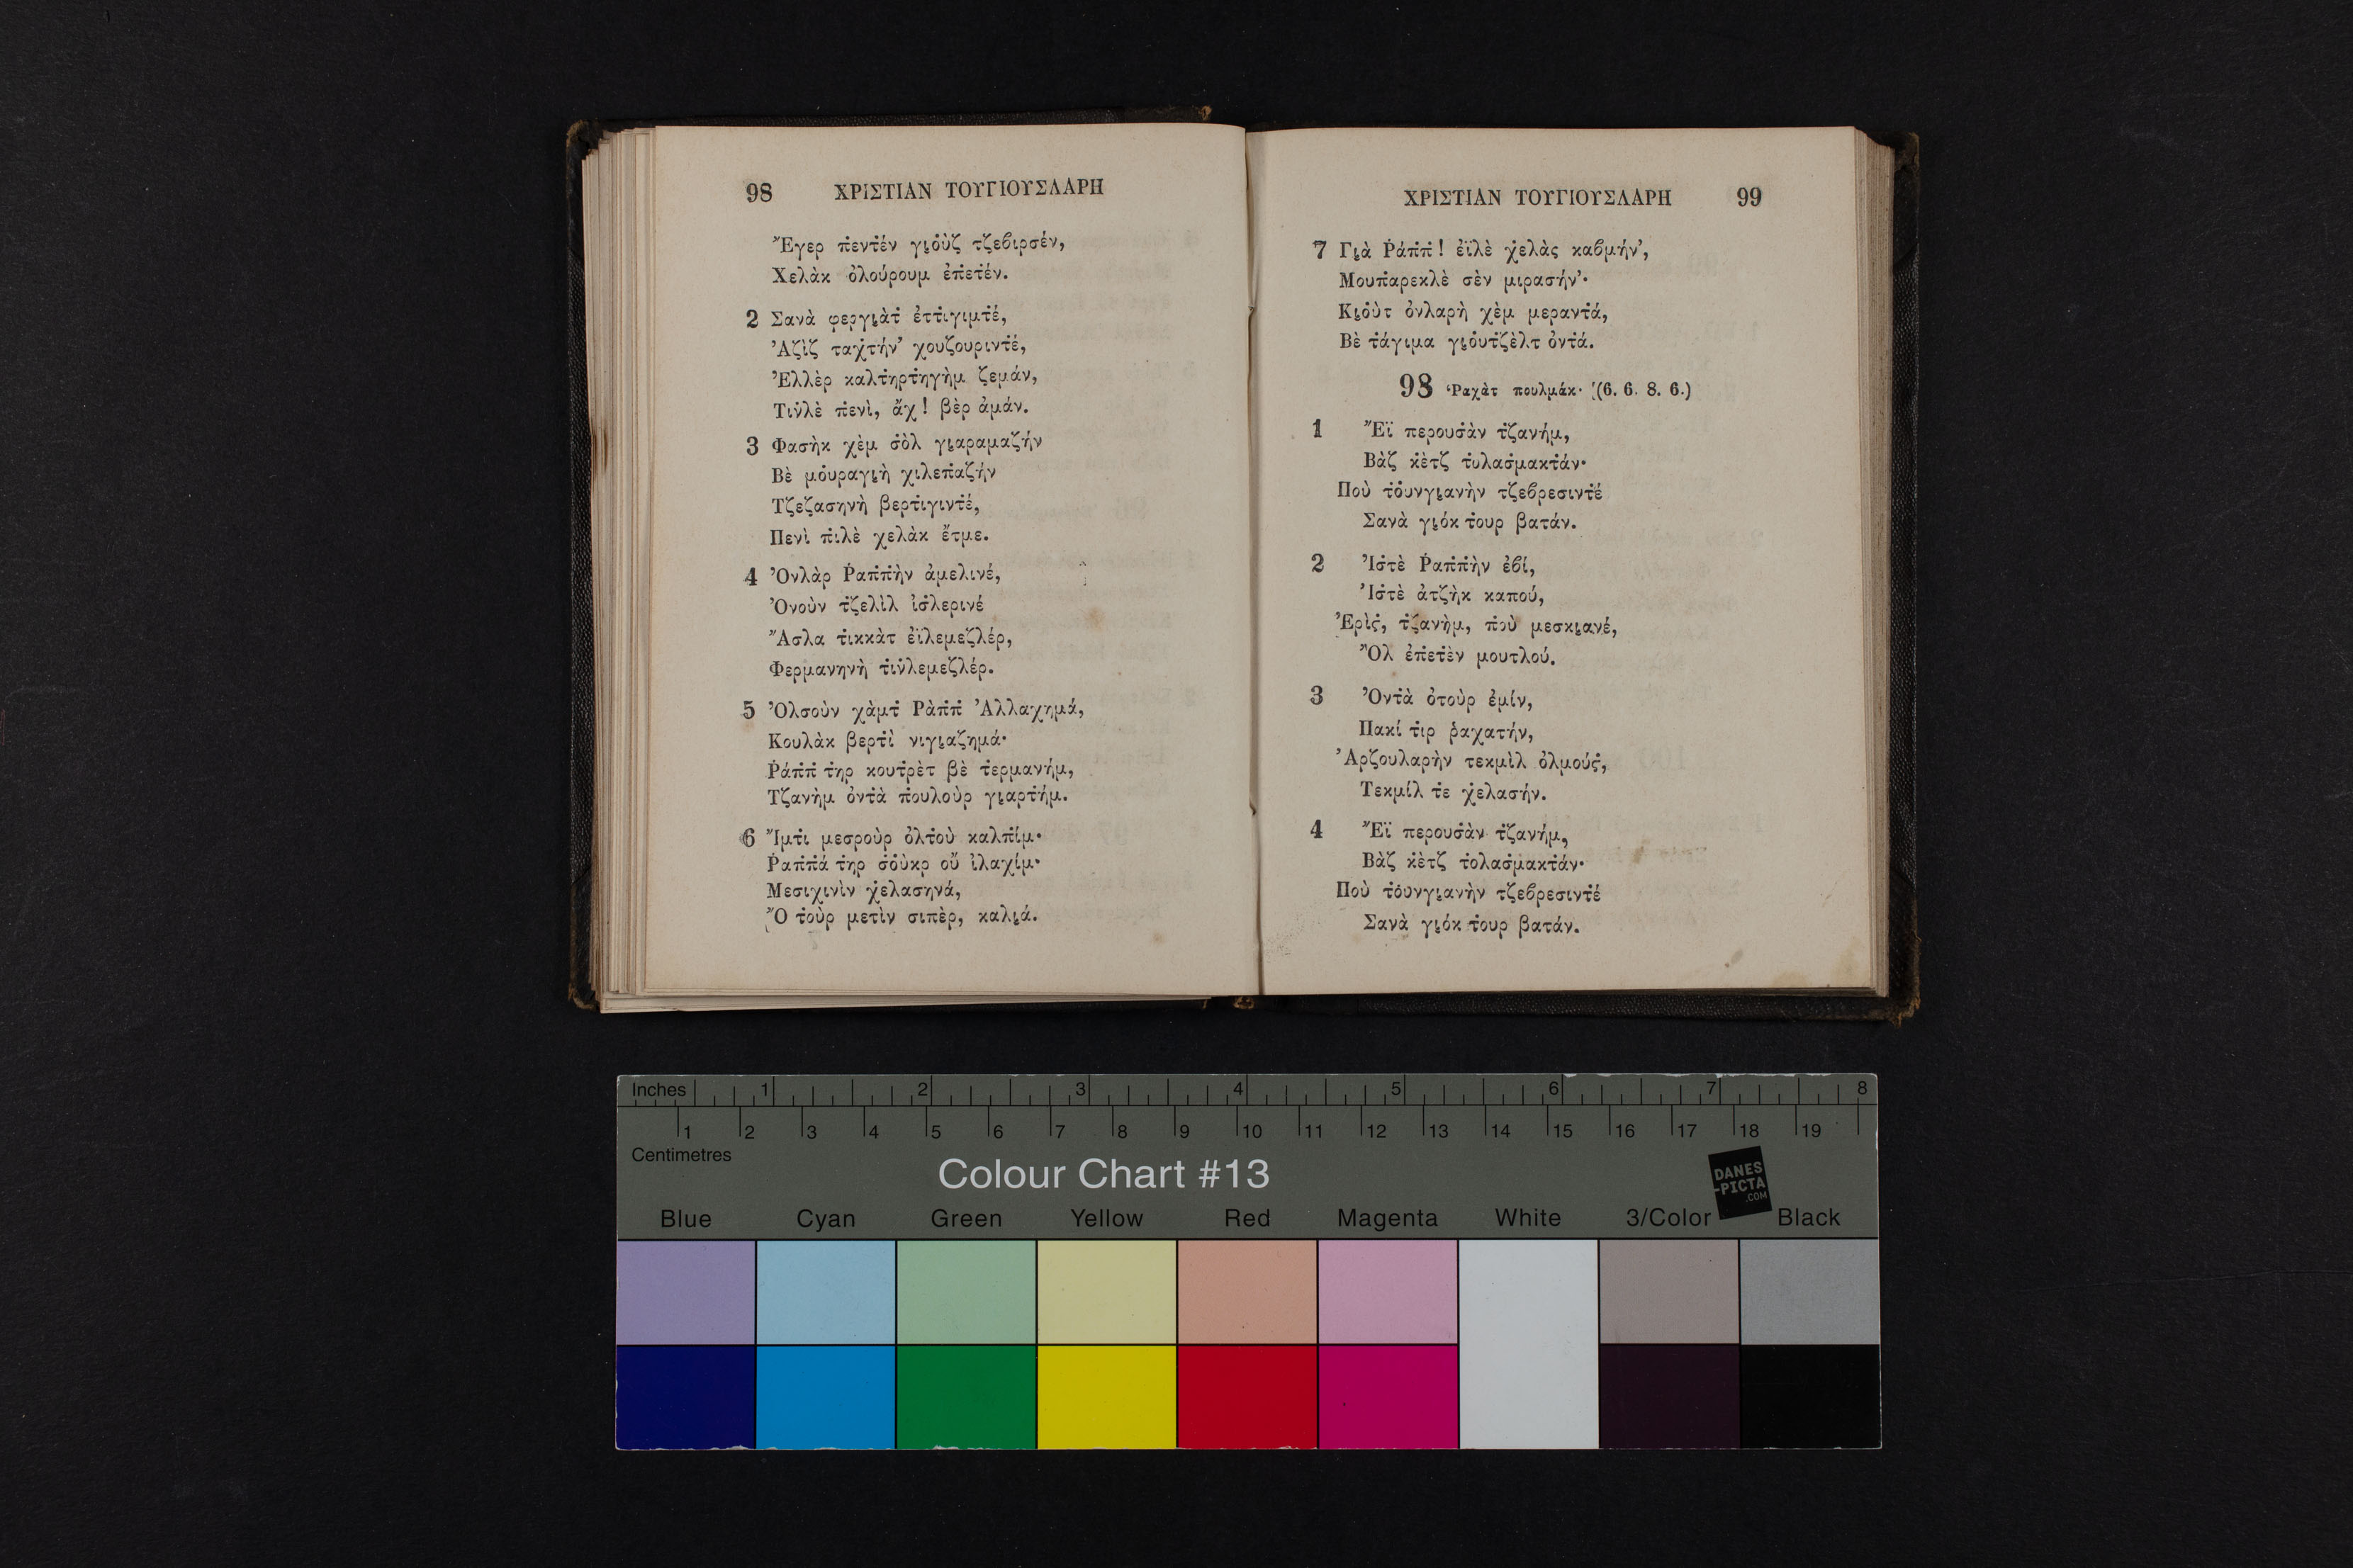 98 ΧΡΙΣΤΙΑΝ ΤΟΥΓΙΟΥΣΛΑΡΗ
Ἔγερ π̇εντ̇έν γι̯ὀὺζ τζεβιρσέν,
Χελὰκ ὀλούρουμ ἐπ̇ετ̇έν.
2 Σανὰ φεργι̯ὰτ̇ ἐττ̇ιγιμτ̇έ,
Ἀζὶζ ταχ̇τήν’ χουζουριντ̇έ,
Ἐλλὲρ καλτ̇ηρτ̇ηγὴμ ζεμάν,
Τιν̇λὲ π̇ενὶ, ἄχ! βὲρ ἀμάν.
3 Φασὴκ χὲμ σ̇ὸλ γι̯αραμαζήν
Βὲ μὀυραγι̯ὴ χιλεπ̇αζήν
Τζεζασηνὴ βερτ̇ιγιντ̇έ,
Πενὶ π̇ιλὲ χελὰκ ἔτμε.
4 Ὀνλὰρ Ῥαπ̇π̇ὴν ἀμελινέ,
Ὀνοὺν τ̇ζελὶλ ἰσ̇λερινέ
Ἄσλα τ̇ικκὰτ ἐϊλεμεζλέρ,
Φερμανηνὴ τ̇ιν̇λεμεζλέρ.
5 Ὀλσοὺν χὰμτ̇ Ρὰπ̇π̇ Ἀλλαχημά,
Κουλὰκ βερτ̇ὶ νιγι̯αζημά·
Ῥάπ̇π̇ τ̇ηρ κουτ̇ρὲτ βὲ τ̇ερμανήμ,
Τζανὴμ ὀντ̇ὰ π̇ουλοὺρ γι̯αρτ̇ήμ.
6 Ἴμτ̇ι μεσροὺρ ὀλτ̇οὺ καλπ̇ίμ·
Ῥαπ̇π̇ά τ̇ηρ σ̇ὀὺκρ οὔ ἰλαχίμ·
Μεσιχινὶν χ̇ελασηνά,
Ὄ τ̇οὺρ μετὶν σιπὲρ, καλι̯ά.
ΧΡΙΣΤΙΑΝ ΤΟΥΓΙΟΥΣΛΑΡΗ 99
7 Γι̯ὰ Ῥάπ̇π̇! ἐϊλὲ χ̇ελὰς καβμήν’,
Μουπ̇αρεκλὲ σὲν μιρασήν’·
Κι̯ὀὺτ ὀνλαρὴ χὲμ μεραντ̇ά,
Βὲ τ̇άγιμα γι̯ὀυτ̇ζὲλτ ὀντ̇ά.
98 Ῥαχὰτ πουλμάκ· (6. 6. 8. 6.)
1 Ἔϊ περουσ̇ὰν τ̇ζανήμ,
Βὰζ κ̇ὲτζ τ̇υλασ̇μακτ̇άν·
Ποὺ τ̇ὀυνγι̯ανὴν τζεβρεσιντ̇έ
Σανὰ γι̯όκ τ̇ουρ βατάν.
2 Ἰσ̇τὲ Ῥαπ̇π̇ὴν ἐβί,
Ἰσ̇τὲ ἀτζὴκ καπού,
Ἐρὶς̇, τ̇ζανὴμ, π̇οὺ μεσκι̯ανέ,
Ὂλ ἐπ̇ετ̇ὲν μουτλού.
3 Ὀντ̇ὰ ὀτοὺρ ἐμίν,
Πακί τ̇ιρ ῥαχατήν,
Ἀρζουλαρὴν τεκμὶλ ὀλμούς̇,
Τεκμίλ τ̇ε χ̇ελασήν.
4 Ἔϊ περουσ̇ὰν τ̇ζανήμ,
Βὰζ κ̇ὲτζ τ̇ολασ̇μακτ̇άν·
Ποὺ τ̇όυνγι̯ανὴν τζεβρεσιντ̇έ
Σανὰ γι̯όκ τ̇ουρ βατάν.
Inches 1 2 3 4 5 6 7 8
1 2 3 4 5 6 7 8 9 10 11 12 13 14 15 16 17 18 19
Centimetres
Colour Chart #13
DANES
-PICTA
.COM
Blue Cyan Green Yellow Red Magenta White 3/Color Black